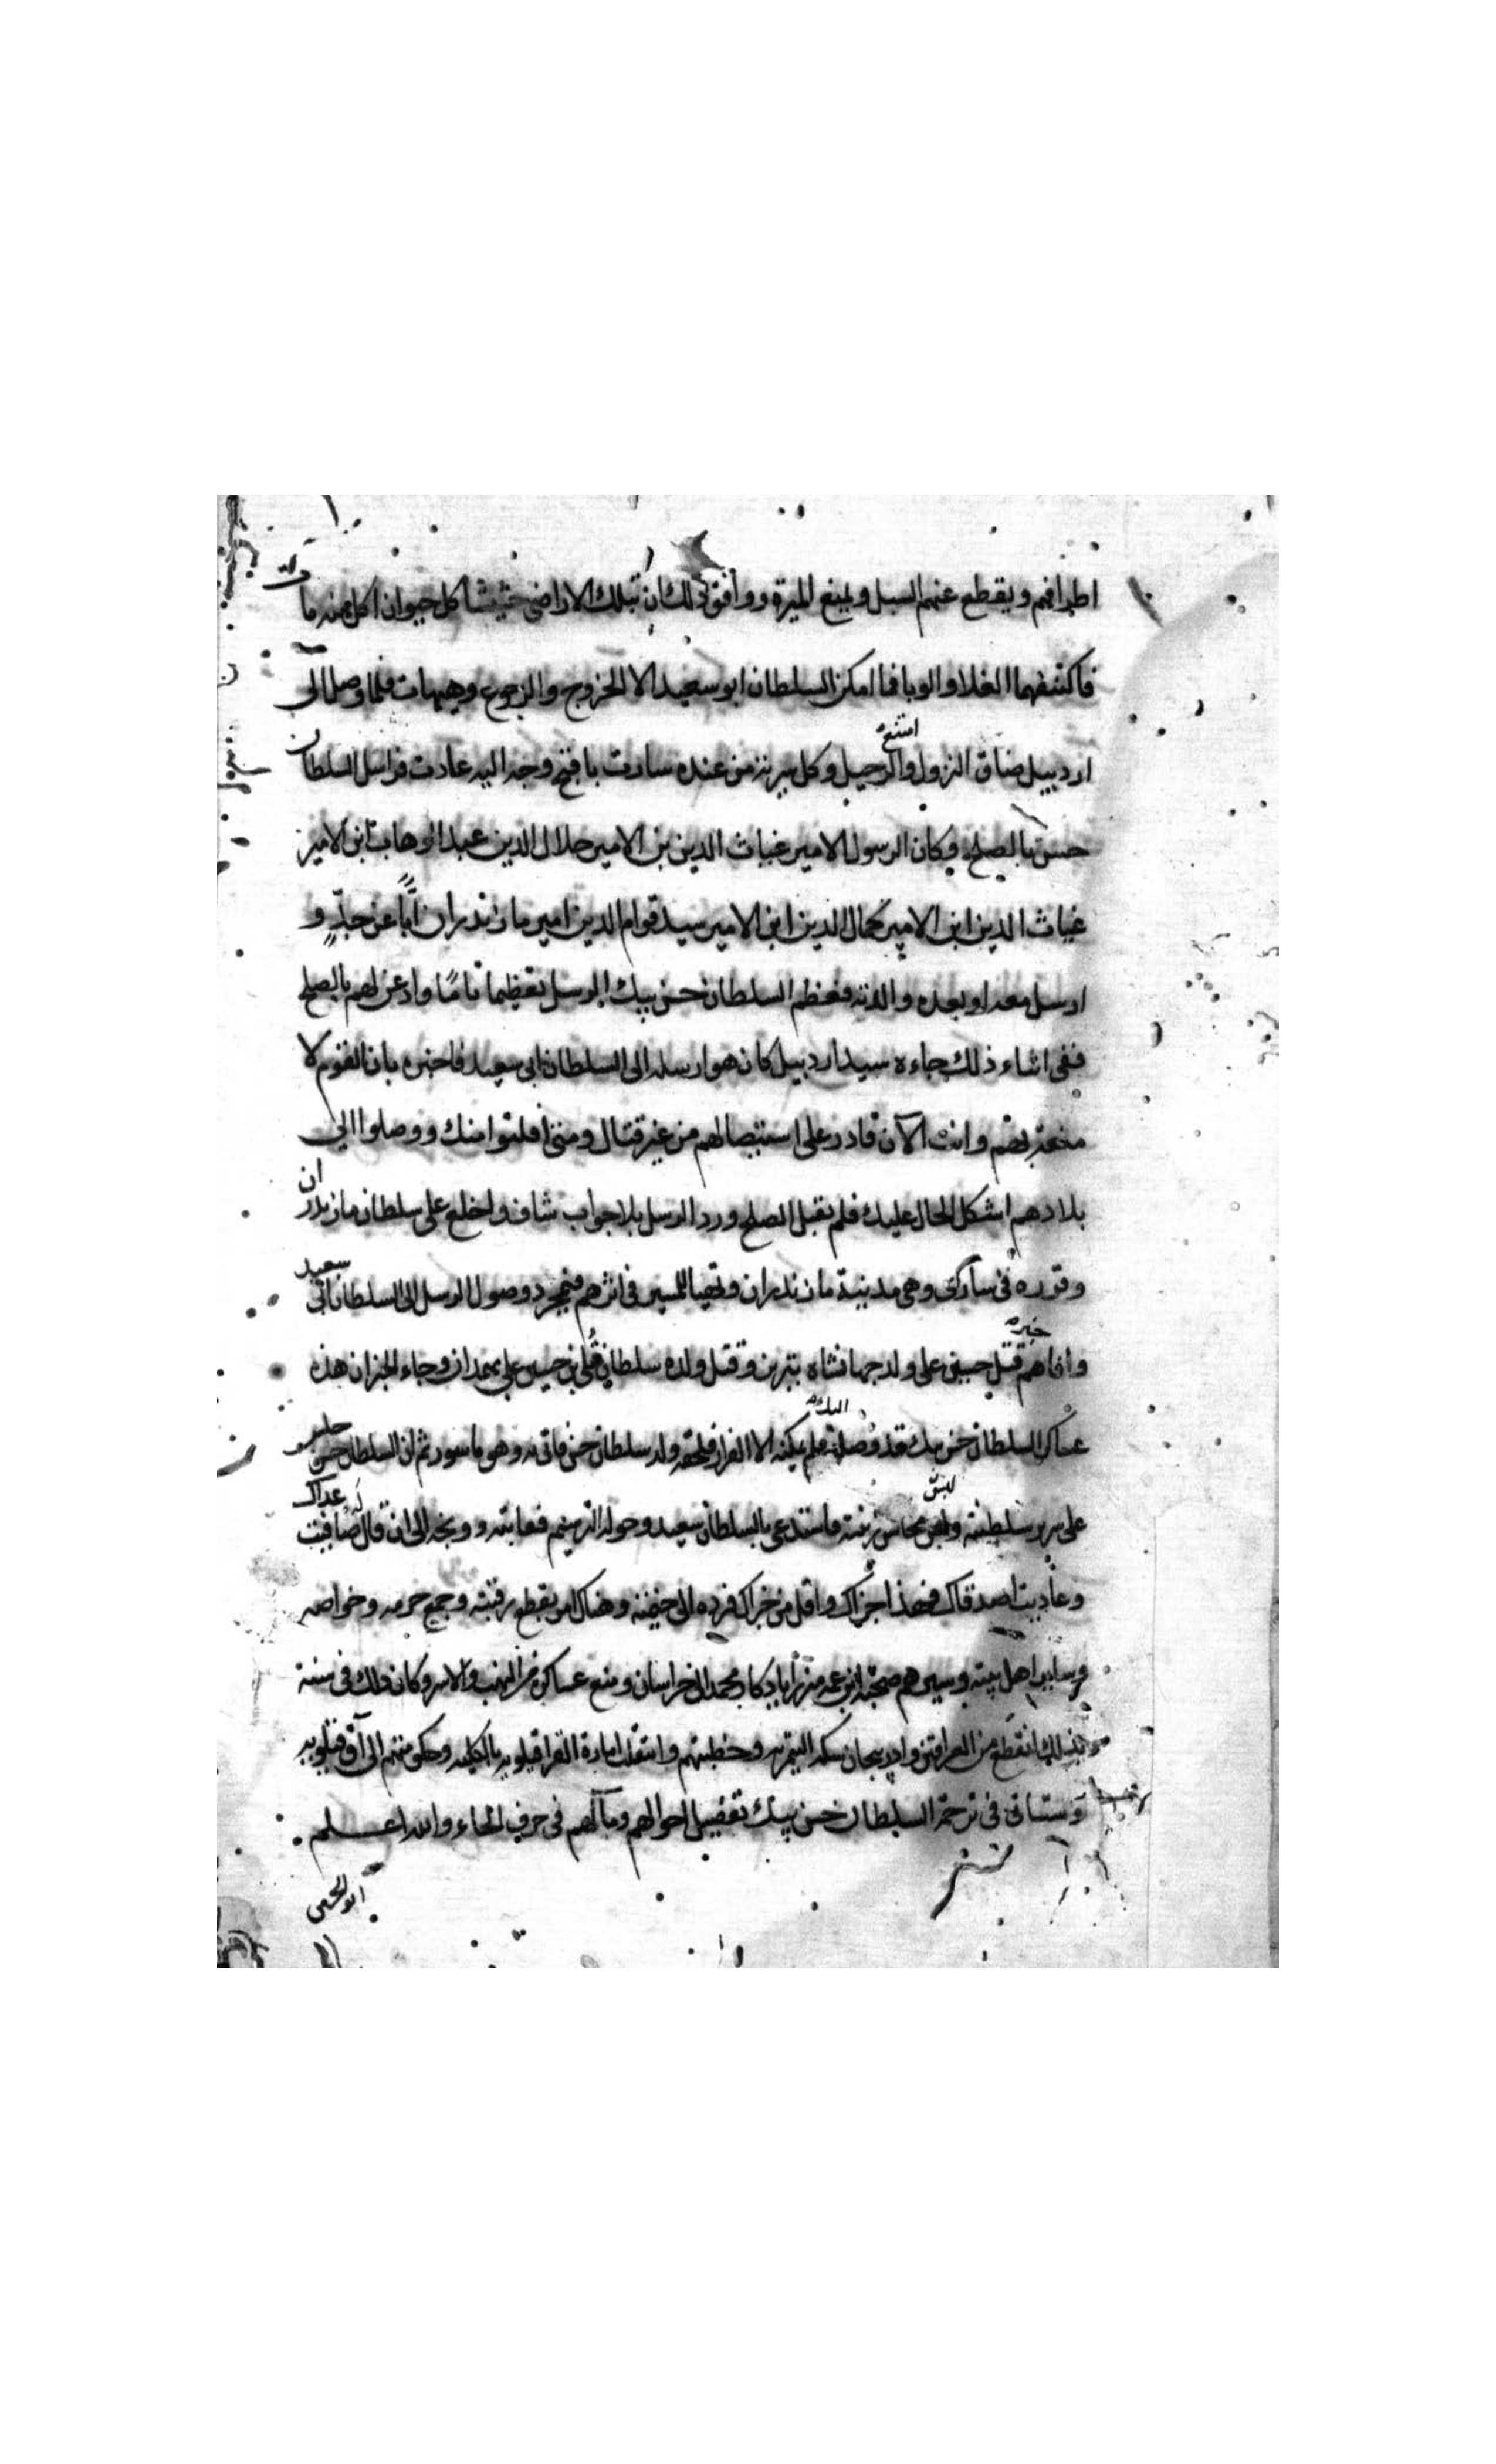 اطرافهم ويقطع عنهم السبل ويمنع الميرة ووافق ذلك ان بتلك الاراضي حشيشا كل حيوان اكل منه مات
فاكتنفهما الغلا والوبا فما امكن السلطان ابو سعيد الا الخروج والرجوع وهيهات فلما وصل الى
اردبيل ضاق النزول وامتنع الرحيل وكل سرية من عنده سارت باقبح وجه اليه عادت فراسل السلطان
حسن بالصلح وكان الرسول الامير غياث الدين بن الامير جلال الدين عبد الوهاب ابن الامير
غياث الدين ابن الامير كمال الدين ابن الامير سيد قوام الدين امير مازندران ابًا عن جدّ و
ارسل معه او بعده والدته فعظم السلطان حسن بيك الرسل تعظيما تامًا واذعن لهم بالصلح
ففي اثناء ذلك جاءه سيد اردبيل كان هو ارسله الى السلطان ابي سعيد فاخبره بان القوم لا
بهم وانت الآن قادر على استيصالهم من غير قتال ومتى افلتوا منك ووصلوا الى
بلادهم اشكل الحال عليك فلم يقبل الصلح ورد الرسل بلا جواب شاف واخلع على سلطان مازندران
وقرره في ساري وهي مدينة مازندران وتهيا للمسير في اثرهم فبمجرد وصول الرسل الى السلطان ابي سعيد
وافاهم خبر قتل حسين علي ولد جهانشاه بتبريز وقتل ولده سلطان قلي بن حسين علي بهمدان وجاء الخبر ان هذه
عساكر السلطان حسن بيك قد وصلت اليك فلم يمكنه الا الفرار فلحقه ولد سلطان حسن فاتى به وهو ماسور ثم ان السلطان حسن جلس
على سرير سلطنته ولبس محاسن زينته فاستدعى بالسلطان سعيد وحوله الترجيم فعاتبه ووبخه الى ان قال له صافيت عداك
وعاديت اصدقاك فهذا جزاك واقل من جزاك فرده الى خيمته وهناك امر بقطع رقبته وجمع حرمه وخواصه
وساير اهل بيته وسيرهم صحبة ابن عمه ميرزا يادكار محمد الى خراسان ومنع عساكره من النهب والاسر وكان ذلك في سنة
وبذلك انقطع من العراقين واذربيجان سكة التيمريه وخطبتهم وانتقلت امارة القراقيلويه بالكليه وحكومتهم الى آق قيلويه
وستاتي في ترجمة السلطان حسن بيك تفصيل احوالهم ومآلهم في حرف الحاء والله اعلم